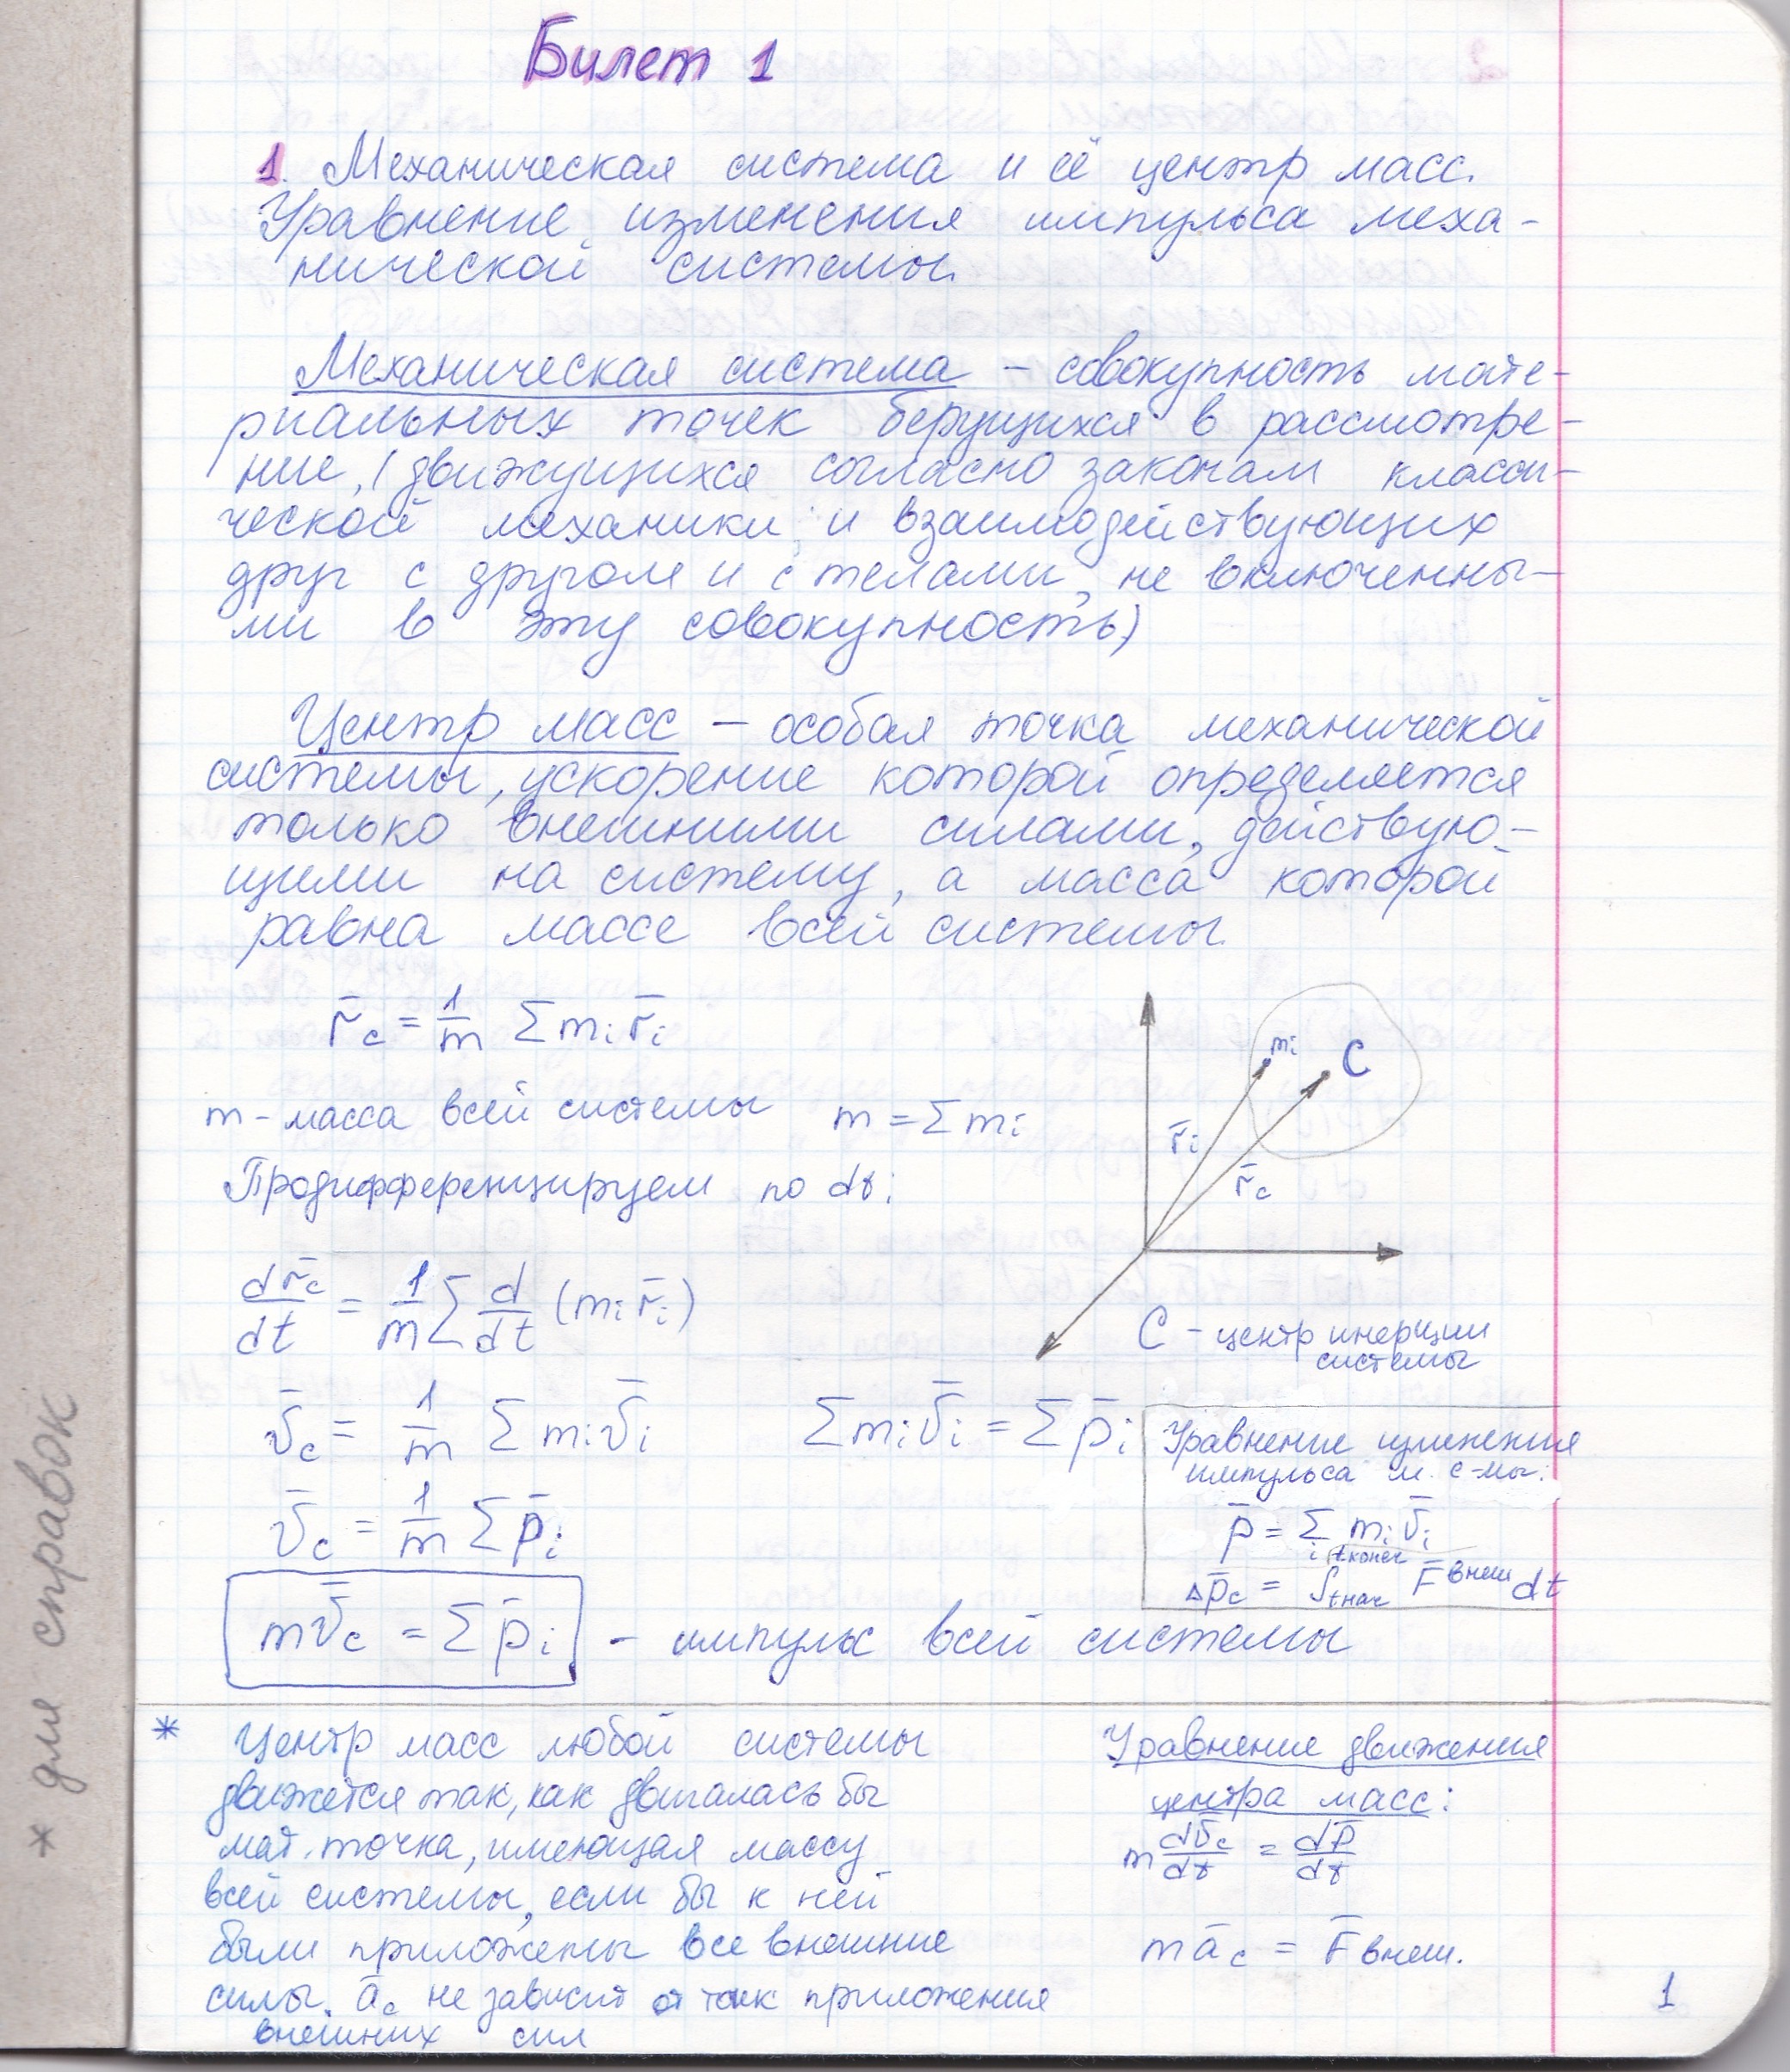 Билет 1
1. Механическая система и её центр масс.
Уравнение изменения импульса меха-
нической системы.
Механическая система – совокупность мате-
риальных точек берущихся в рассмотре-
ние, (движущихся согласно законам класси-
ческой механики и взаимодействующих
друг с другом и с телами, не включенны-
ми в эту совокупность)
Центр масс – особая точка механической
системы, ускорение которой определяется
только внешними силами, действую-
щими на систему, а масса которой
равна массе всей системы.
r̄c = 1/m Σ mi r̄i
m – масса всей системы m = Σ mi
Продифференцируем по dt:
mi C
r̄i
r̄c
C – центр инерции
системы
dr̄c/dt = 1/m Σ d/dt (mi r̄i)
v̄c = 1/m Σ mi v̄i Σ mi v̄i = Σ p̄i
v̄c = 1/m Σ p̄i
Уравнение изменения
импульса м. с-мы:
p̄ = Σi mi v̄i
Δp̄c = ∫tнач tконеч F̄внеш dt
m v̄c = Σ p̄i – импульс всей системы
* Центр масс любой системы
движется так, как двигалась бы
мат. точка, имеющая массу
всей системы, если бы к ней
были приложены все внешние
силы. āc не зависит от точк приложения
внешних сил
Уравнение движения
центра масс:
m dv̄c/dt = dp̄/dt
m āc = F̄внеш.
1
* для справок